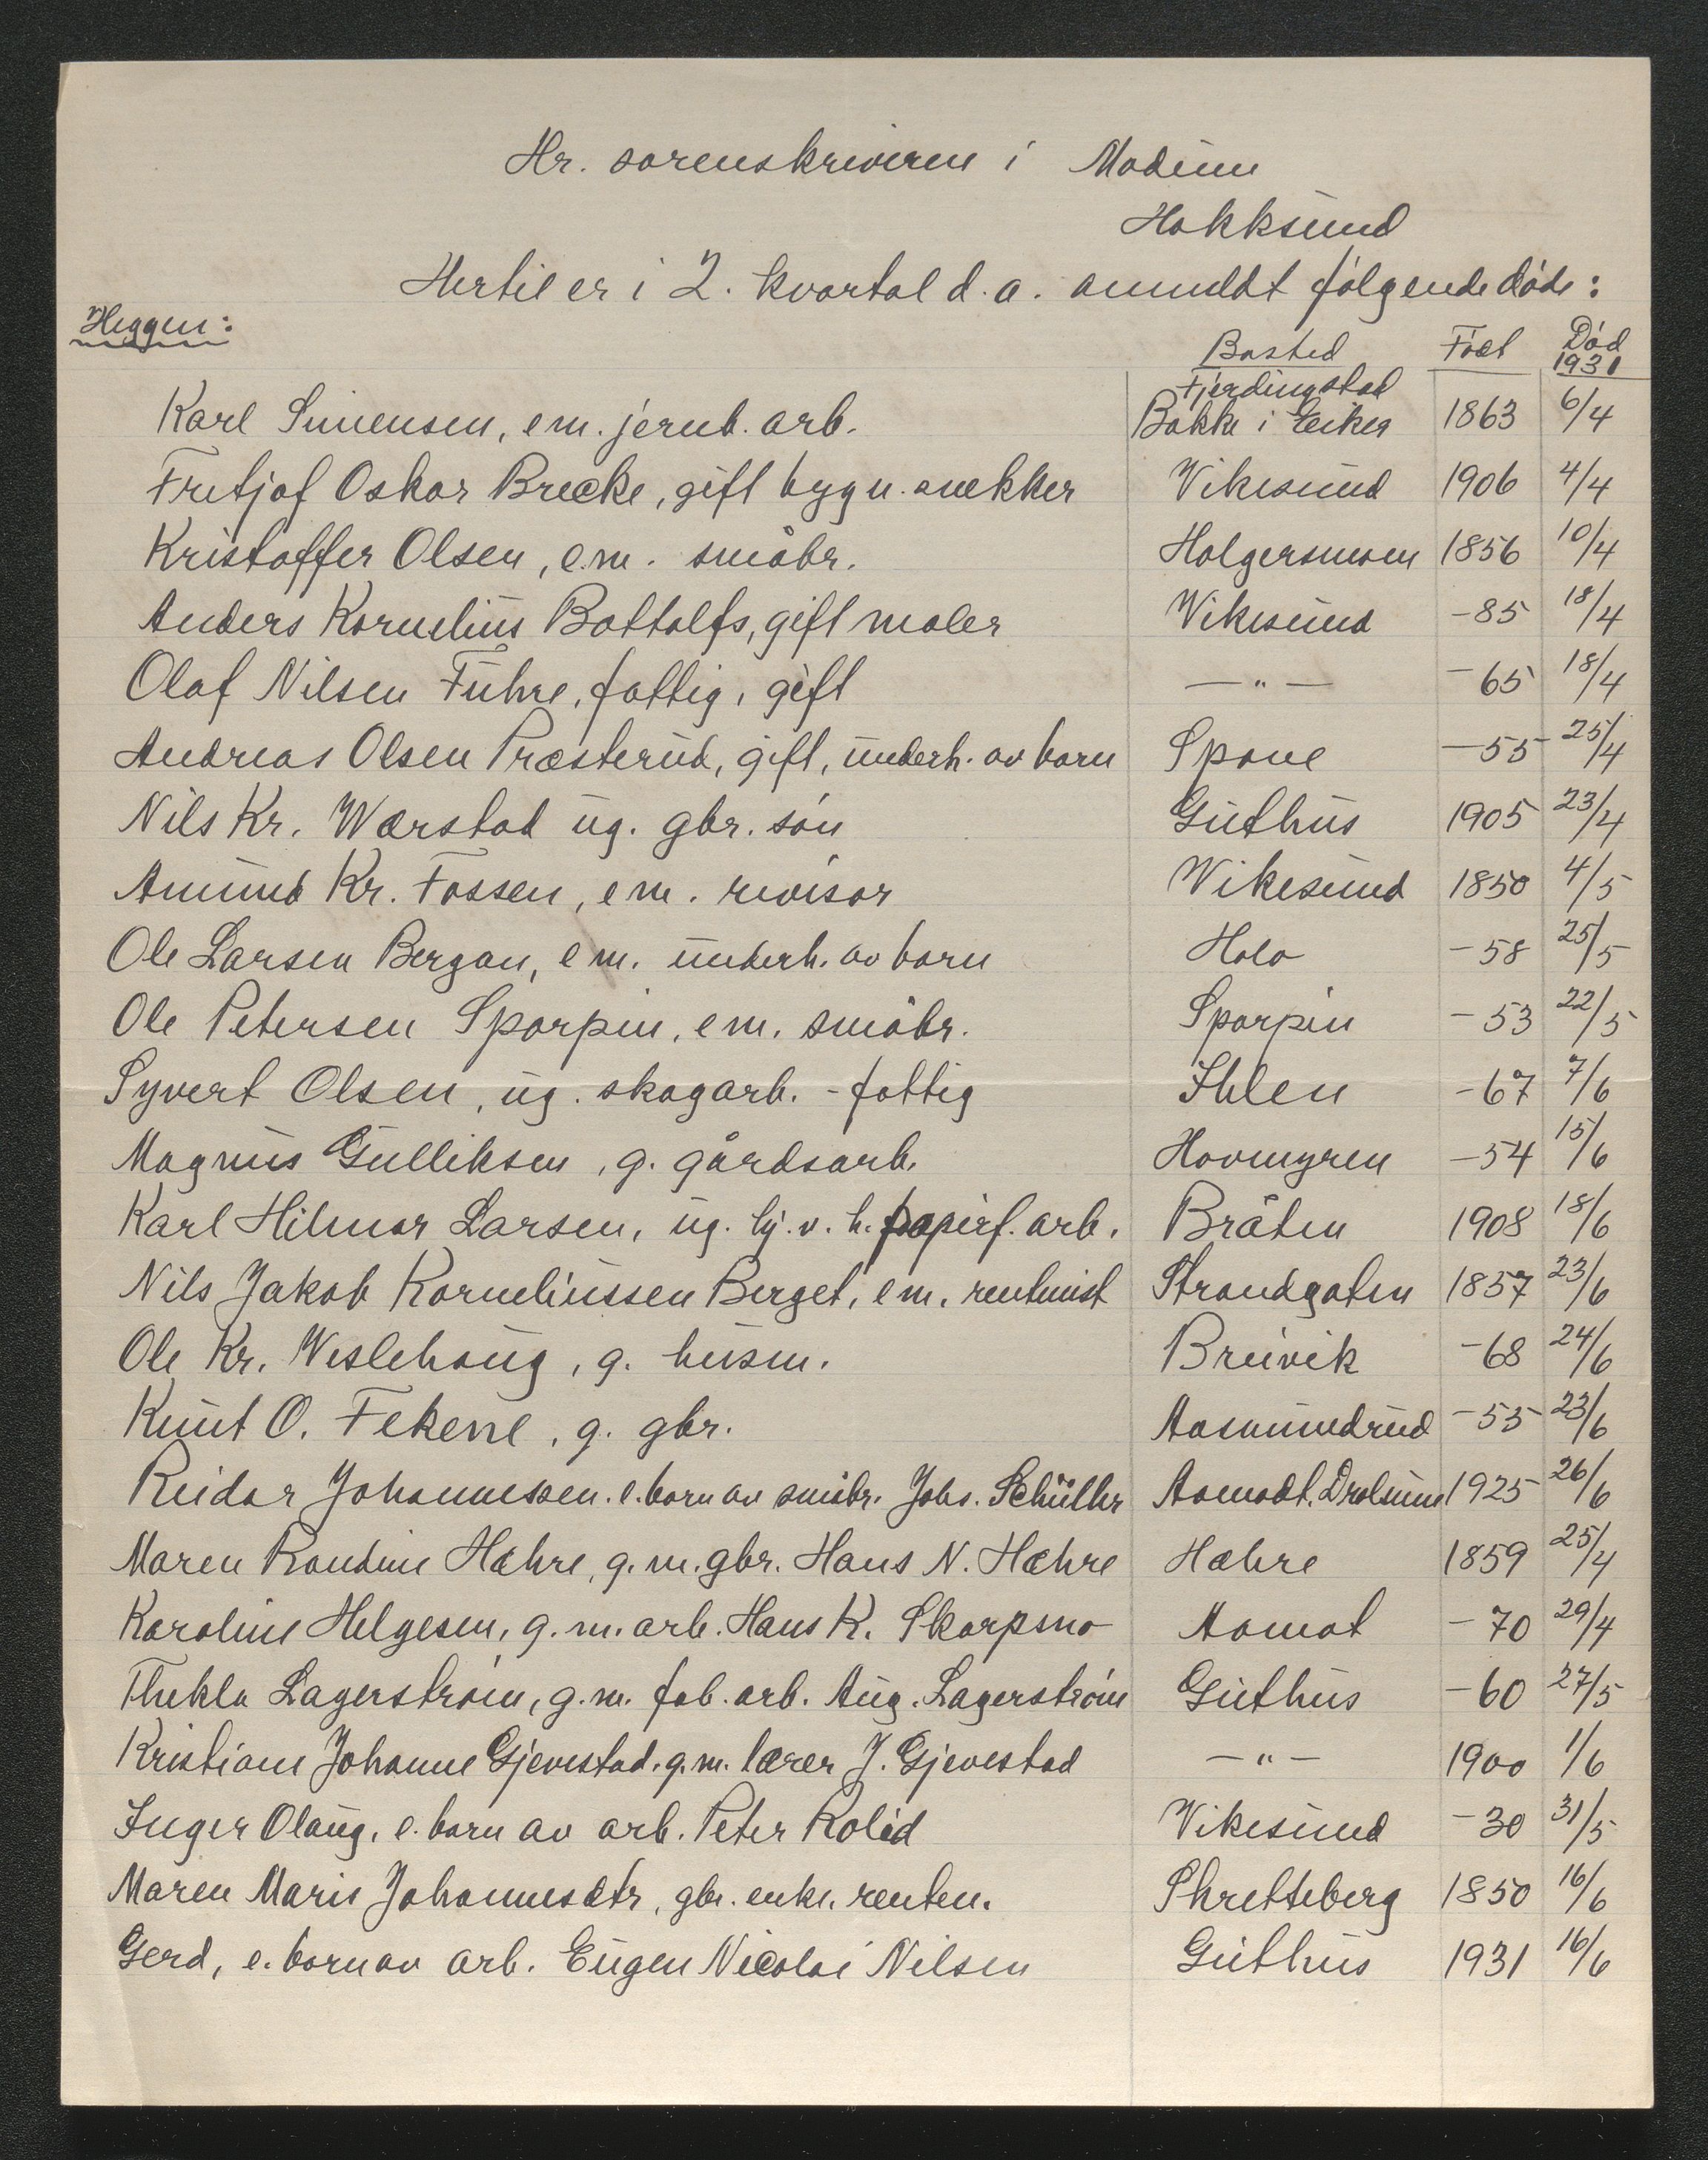 Hr. sorenskriveren i Modum
Hokksund
Hertil er i 2. kvartal d.a. anmeldt følgende døde:
Heggen:
Bosted Født Død 1931
Fjerdingstad
Karl Simensen, em. jernb. arb. Bakke i Eiker 1863 6/4
Fritjof Oskar Brecke, gift bygn. snekker Vikesund 1906 4/4
Kristoffer Olsen, em. småbr. Holgersmoen 1856 10/4
Anders Kornelius Bottolfs, gift maler Vikesund -85 18/4
Olaf Nilsen Fuhre, fattig, gift —"— -65 18/4
Andreas Olsen Præsterud, gift, underh. av barn Spone -55 25/4
Nils Kr. Wærstad ug. gbr. søn Guthus 1905 23/4
Amund Kr. Fossen, em. revisor Vikesund 1850 4/5
Ole Larsen Bergan, em. underh. av barn Hole -58 25/5
Ole Petersen Sporpin, em. småbr. Sporpin -53 22/5
Syvert Olsen, ug. skogarb. - fattig Ihlen -67 7/6
Magnus Gulliksen, g. gårdsarb. Hovmyren -54 15/6
Karl Hilmar Larsen, ug. hj. v. h. papirf. arb. Bråten 1908 18/6
Nils Jakob Korneliussen Berget, em. rentenist Strandgaten 1857 23/6
Ole Kr. Weslehaug, g. husm. Breivik -68 24/6
Knut O. Fekene, g. gbr. Aasmundrud -55 23/6
Reidar Johannessen. e. barn av småbr. Johs. Schüller Aamodt, Drolsum 1925 26/6
Maren Randine Hæhre, g. m. gbr. Hans N. Hæhre Hæhre 1859 25/4
Karoline Helgesen, g. m. arb. Hans K. Skarpsno Aamot -70 29/4
Thekla Lagerstrøm, g. m. fab. arb. Aug. Lagerstrøm Guthus -60 27/5
Kristiane Johanne Gjevestad. g. m. lærer J. Gjevestad —"— 1900 1/6
Inger Olaug, e. barn av arb. Peter Rolid Vikesund -30 31/5
Maren Marie Johannesdtr, gbr. enke. renten. Skretteberg 1850 16/6
Gerd, e. barn av arb. Eugen Nicolai Nilsen Guthus 1931 16/6